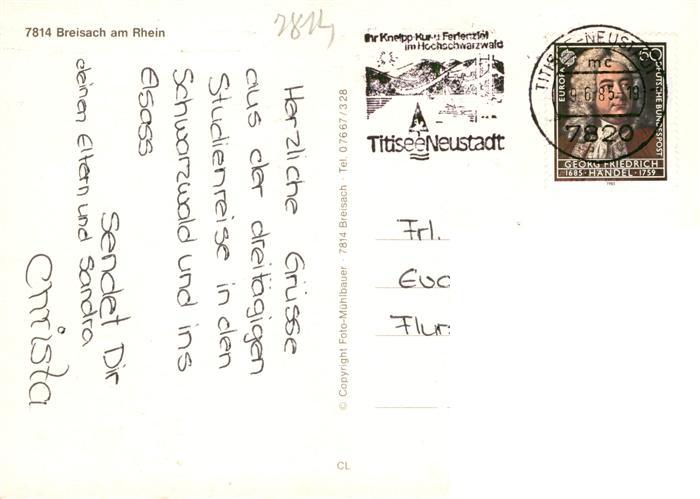 7814 Breisach am Rhein
7814
Herzliche Grüsse
aus der dreitägigen
Studienreise in den
Schwarzwald und ins
Elsass
Sendet Dir
deinen Eltern und Sandra
Christa
© Copyright Foto-Mühlbauer · 7814 Breisach · Tel. 07667/328
CL
Ihr Kneipp-Kur-u Ferienziel
im Hochschwarzwald
Titisee Neustadt
TITISEE-NEUST
mc
6.85-19
7820
EUROPA
60
DEUTSCHE BUNDESPOST
GEORG FRIEDRICH
1685 · HÄNDEL · 1759
Frl.